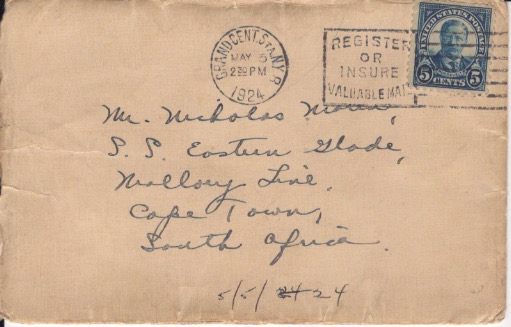 GRAND CENT. STA. N.Y.
MAY 5
2 PM
1924
REGISTER
OR
INSURE
VALUABLE MAIL
UNITED STATES POSTAGE
5 CENTS 5
Mr. Nicholas
S. S. Eastern Glade,
Mallory Line,
Cape Town,
South Africa.
5/5/ 24